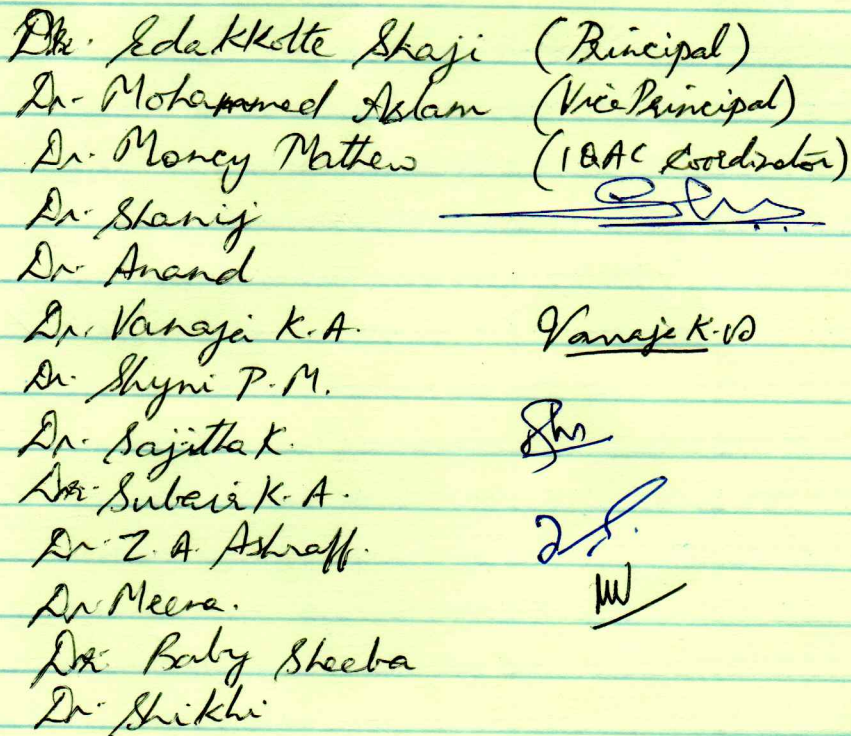 Dr. Edakkotte Shaji (Principal)
Dr. Mohammed Aslam (Vice Principal)
Dr. Moncy Mathew (IQAC Coordinator)
Dr. Shanij
Dr. Anand
Dr. Vanaja K.A. Vanaja K.A
Dr. Shyni P.M.
Dr. Sajitha K.
Dr. Subair K.A.
Dr. Z.A. Ashraff.
Dr Meera.
Dr. Baby Sheeba
Dr. Shikhi